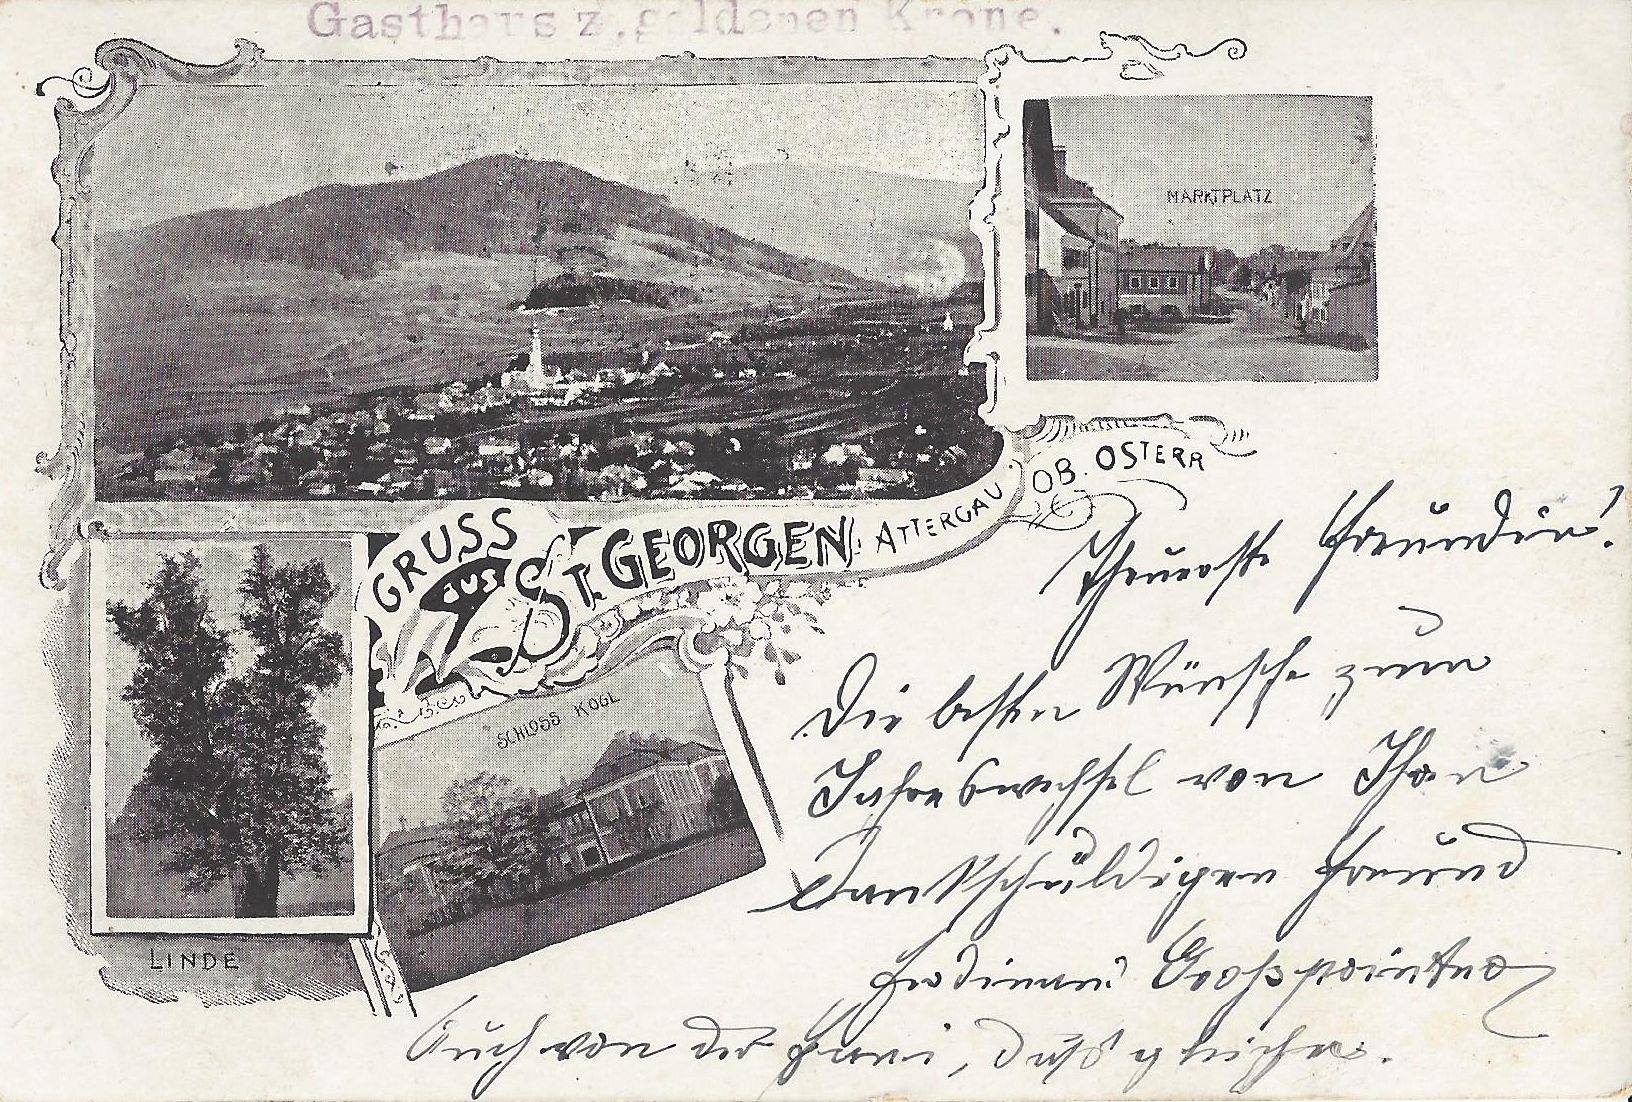 Gasthaus z. goldenen Krone.
MARKTPLATZ
GRUSS
AUS
ST. GEORGEN
ATTERGAU
OB. OSTERR
SCHLOSS KOGL
LINDE
Theuerste Freundin!
Die besten Wünsche zum
Jahreswechsel von Ihren
dankschuldigen Freund
Ferdinand
Auch von der